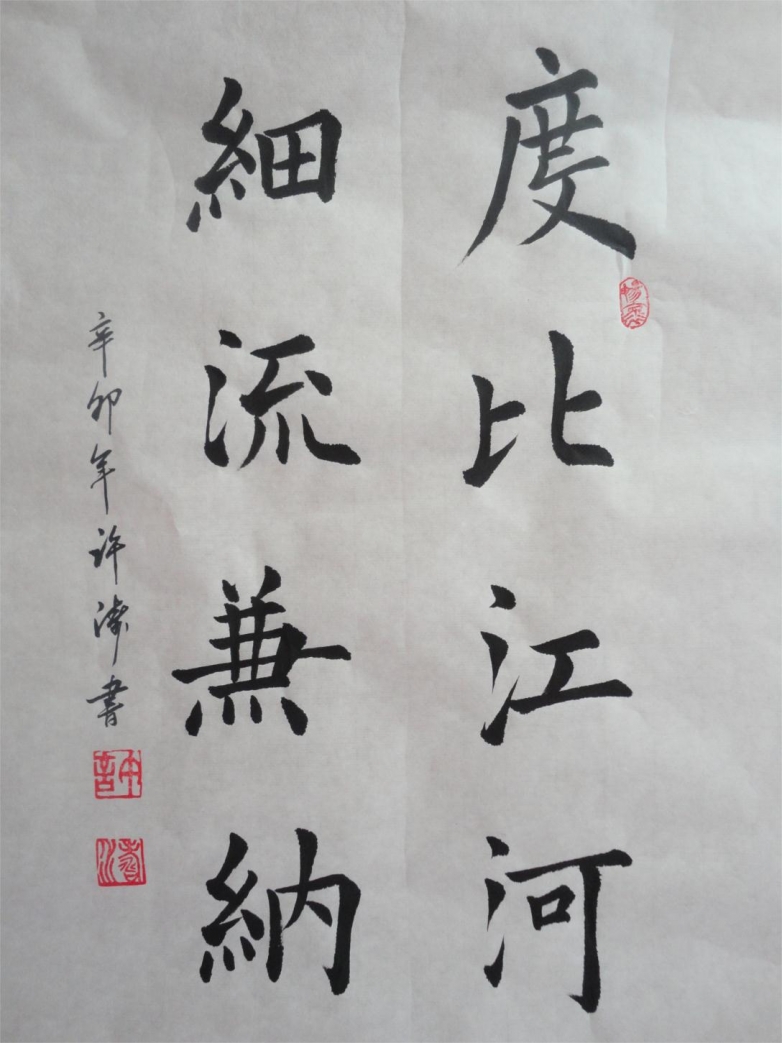 度比江河
細流兼納
辛卯年许涛書